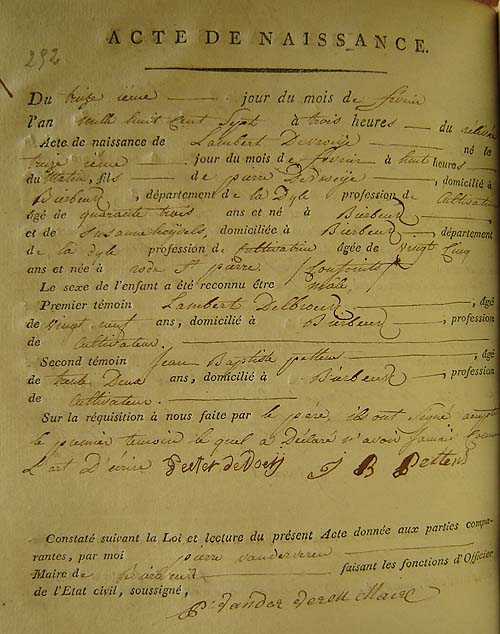 292
ACTE DE NAISSANCE.
Du treize ième jour du mois de février
l'an mille huit Cent Sept à trois heures du relevée
Acte de naissance de Lambert né le
treize ième jour du mois de février à huit heures
du Matin, fils de pierre , domicilié à
Bierbeux , département de la Dyle profession de Cultivateur
âgé de quarante trois ans et né à Bierbeux
et de Susanne , domiciliée à Bierbeux , département
de la dyle profession de Cultivatrice âgée de vingt Cinq
ans et née à rode St pierre Conjoints
Le sexe de l'enfant a été reconnu être mâle,
Premier témoin Lambert Delbroux , âgé
de vingt neuf ans, domicilié à Bierbeux , profession
de Cultivateur.
Second témoin Jean Baptiste , âgé
de trente Deux ans, domicilié à Bierbeux , profession
de Cultivateur.
Sur la réquisition à nous faite par le père, ils ont signé
le premier temoin le quel a Déclaré n'avoir jamais
L'art D'écrire Peeter J B Pettens
Constaté suivant la Loi et lecture du présent Acte donnée aux parties compa-
rantes, par moi pierre vanderveren
Maire de faisant les fonctions d'Officier
de l'Etat civil, soussigné,
P: Vander Veren Maire